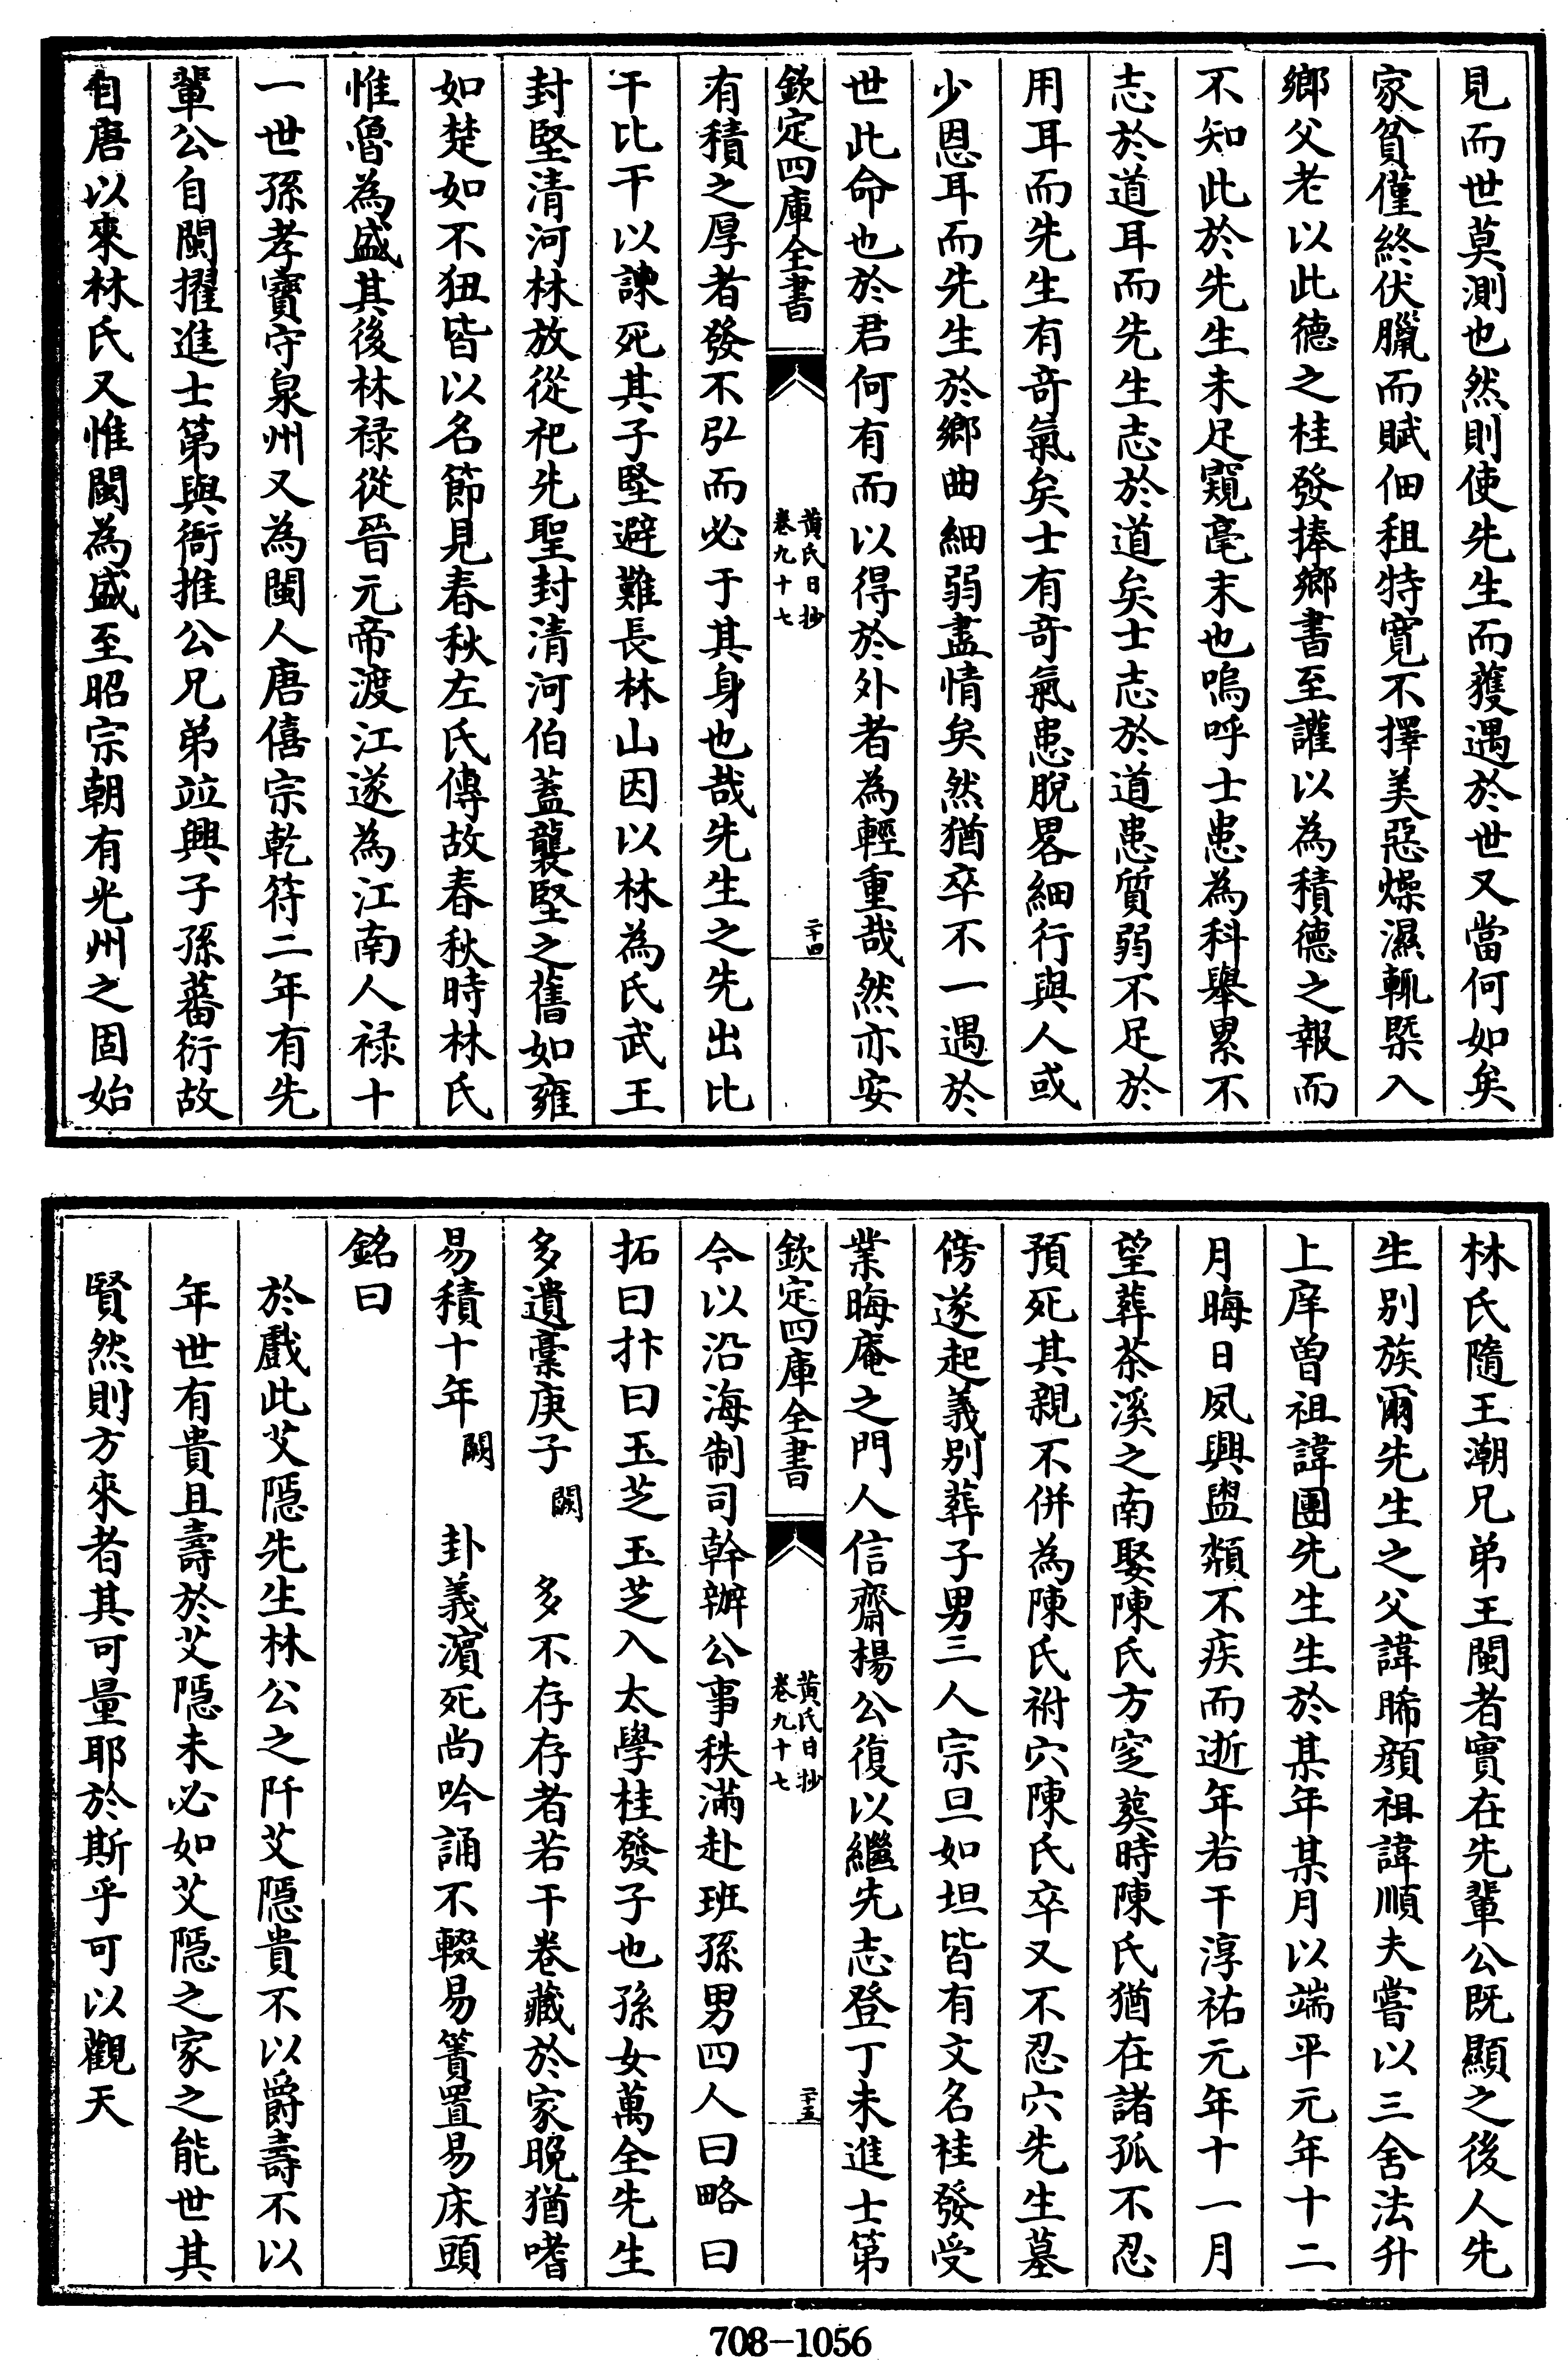 見而世莫測也然則使先生而獲遇於世又當何如矣
家貧僅終伏臘而賦佃租特寛不擇美惡燥濕輒槩入
鄉父老以此德之桂發捧鄉書至讙以為積德之報而
不知此於先生未足窺毫末也嗚呼士患為科舉累不
志於道耳而先生志於道矣士志於道患質弱不足於
用耳而先生有竒氣矣士有竒氣患脫畧細行與人或
少恩耳而先生於鄉曲細弱盡情矣然猶卒不一遇於
世此命也於君何有而以得於外者為輕重哉然亦安
欽定四庫全書
黄氏日抄
卷九十七
二十四
有積之厚者發不弘而必于其身也哉先生之先出比
干比干以諫死其子堅避難長林山因以林為氏武王
封堅清河林放從祀先聖封清河伯蓋襲堅之舊如雍
如楚如不狃皆以名節見春秋左氏傳故春秋時林氏
惟魯為盛其後林禄從晉元帝渡江遂為江南人禄十
一世孫孝寶守泉州又為閩人唐僖宗乾符二年有先
輩公自閩擢進士第與衙推公兄弟竝興子孫蕃衍故
自唐以來林氏又惟閩為盛至昭宗朝有光州之固始
林氏隨王潮兄弟王閩者實在先輩公既顯之後人先
生別族爾先生之父諱晞顔祖諱順夫嘗以三舍法升
上庠曽祖諱團先生生於某年某月以端平元年十二
月晦日夙興盥頮不疾而逝年若干淳祐元年十一月
望葬茶溪之南娶陳氏方窆葬時陳氏猶在諸孤不忍
預死其親不併為陳氏祔穴陳氏卒又不忍穴先生墓
傍遂起義別葬子男三人宗旦如坦皆有文名桂發受
業晦庵之門人信齋楊公復以繼先志登丁未進士第
欽定四庫全書
黄氏日抄
卷九十七
二十五
令以沿海制司幹辦公事秩滿赴班孫男四人曰略曰
拓曰抃曰玉芝玉芝入太學桂發子也孫女萬全先生
多遺藁庚子闕多不存存者若干卷藏於家晩猶嗜
易積十年闕卦義濵死尚吟誦不輟易簀置易床頭
銘曰
於戲此艾隠先生林公之阡艾隠貴不以爵壽不以
年世有貴且壽於艾隠未必如艾隠之家之能世其
賢然則方來者其可量耶於斯乎可以觀天
708-1056